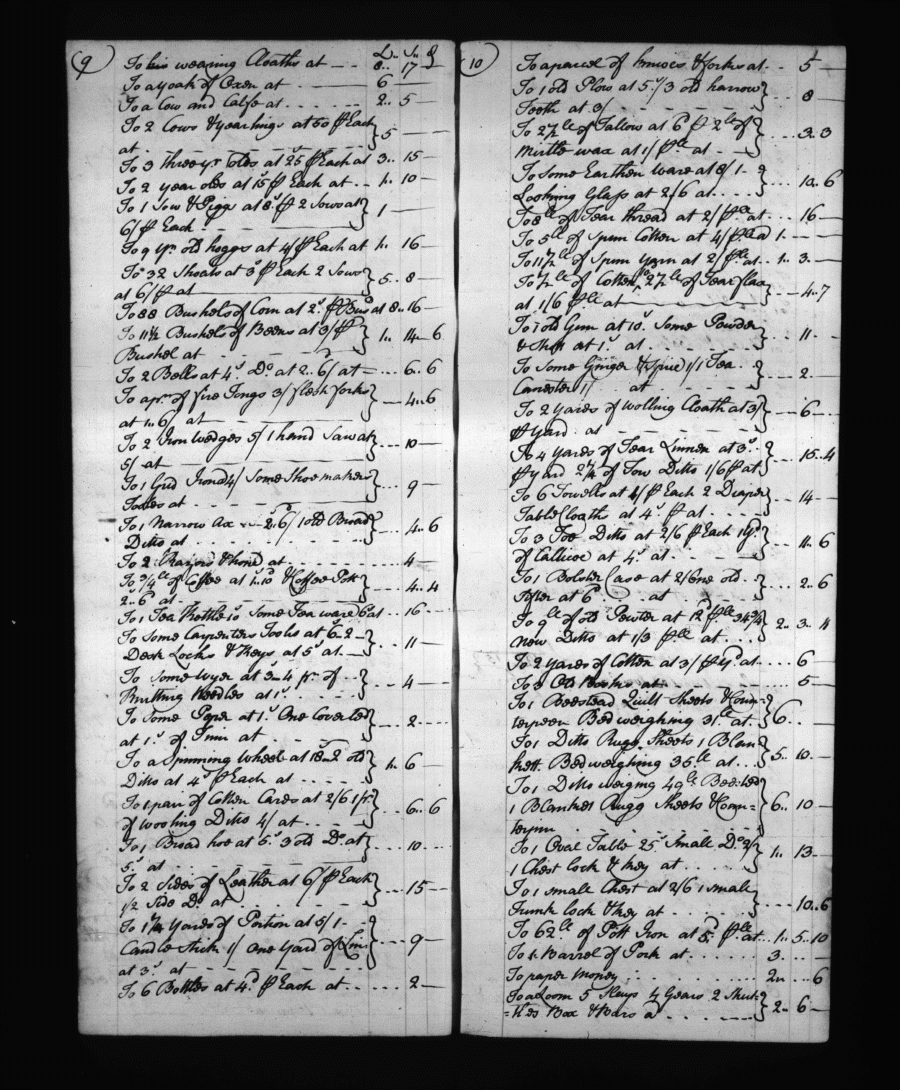 9
L.. S.. d
To his wearing Cloaths at - - 8.. 17 -
To a yoak of Oxen at 6 -
To a Cow and Calfe at 2.. 5 -
To 2 Cows & yearlings at 50 ⅌ Each
at 5 - -
To 3 three yr olds at 25s ⅌ Each at 3.. 15 -
To 2 year olds at 15s ⅌ Each at 1.. 10 -
To 1 Sow & Piggs at 8s ⅌ 2 Sows at
6/ ⅌ Each 1 -
To 9 yr old hoggs at 4/ ⅌ Each at 1.. 16 -
To 32 Shoats at 3s ⅌ Each 2 Sows
at 6/ ⅌ at 5.. 8 -
To 88 Bushels of Corn at 2s ⅌ Bus at 8.. 16 -
To 11½ Bushels of Beens at 3/ ⅌
Bushel at 1.. 14 - 6
To 2 Bells at 4s Do at 2.. 6/ at - 6.. 6
To a pr of fire Tongs 3/ flesh forks
at 1.. 6/ at - 4.. 6
To 2 Iron wedges 5/ 1 hand Saw at
5/ at 10 -
To 1 Grid Iron 4/ Some Shoe makers
Tooles at 9 -
To 1 Narrow Ax 2.. 6/ 1 old Broad
Ditto at 4.. 6
To 2 Razors & hone at 4 -
To ¾ le of Coffee at 1..10 & Coffee Pott
2.. 6 at 4.. 4
To 1 Tea Kettle 10 Some Tea ware 6 at 16 -
To Some Carpenters Tooles at 6 - 2 -
Desk Locks & Keys at 5s at 11 -
To Some wyer at 3 - 4 pr of
Knitting Needles at 1s 4 -
To Some Paper at 1s One Coverled
at 1s of at 2
To a Spinning wheel at 18 - 2 old
Ditto at 4s ⅌ Each at 1.. 6
To 1 pair of Cotten Cards at 2/6 1 pr
of wooling Ditto 4/ at 6.. 6
To 1 Broad hoe at 5s 3 old Do at
5s at 10 -
To 2 Sides of Leather at 6/ ⅌ Each
1/2 Side Do at 15 -
To 1¼ yards of Portion at 5/ 1 -
Candle Stick 1/ One Yard of
at 3s at 9 -
To 6 Bottles at 4d ⅌ Each at 2 -
10
To a parcel of knives & forks at 5 -
To 1 old Plow at 5s/ 3 old harrow
Teeth at 3/ 8 -
To 27½ le of Tallow at 6d ⅌ 2 le of
Mirtle wax at 1/ ⅌ le at 3.. 3
To Some Earthen ware at 8/ 1 -
Looking Glass at 2/6 at 10.. 6
To 8 le of Tear thread at 2/ ⅌ le at 16 -
To 5 le of Spun Cotten at 4/ ⅌ le a 1.
To 11½ le of Spun yarn at 2/ ⅌ le at 1.. 3 -
To ½ le of Cotten 27½ le of Tear flax
at 1/6 ⅌ le at - 4.. 7
To 1 old Gun at 10s Some Powder
& Shott at 1s at 11 -
To Some Ginger & Spice 1/ 1 Tea
Canester 1/ at 2
To 2 yards of wolling Cloath at 3/
⅌ yard at 6 -
To 4 yards of Tear Linnen at 3s
⅌ yard 2¼ of Tow Ditto 1/6 ⅌ at 15.. 4
To 6 Towells at 1/ ⅌ Each 2 Diaper
Table Cloath at 4s ⅌ at 14 -
To 3 Tow Ditto at 2/6 ⅌ Each 1 yd
of Callicoe at 4s at 11.. 6
To 1 Bolster Case at 2/6 one old
at 6 at 2.. 6
To 9 le of old Pewter at 12d ⅌ le 34¾
New Ditto at 1/3 ⅌ le at 2.. 3.. 4
To 2 yards of Cotten at 3/ ⅌ yd at 6 -
To 3 Old Books at 5 -
To 1 Beestead Quilt Sheets & Coun-
terpeen Bed weighing 31 le at 6..
To 1 Ditto Rugg Sheets 1 Blan
kett Bed weighing 35 le at 5.. 10 -
To 1 Ditto weiging 49 le Beested
1 Blanket Rugg Sheets & Coun=
terpin 6.. 10 -
To 1 Oval Table 25s Small Do 2/
1 Chest lock & key at 1.. 13 -
To 1 small Chest at 2/6 1 small
Trunk lock & key at 10.. 6
To 62 le of Pott Iron at 5d ⅌ le at 1.. 5.. 10
To 1 Barrel of Pork at 3
To paper money 2 6
To a Loom 5 Sleys 4 Gears 2 Shut-
=tles Box & Bars a 2.. 6 -